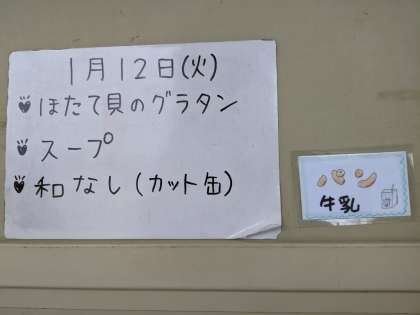 1月12日(火)
ほたて貝のグラタン
スープ
和なし(カット缶)
パン
牛乳